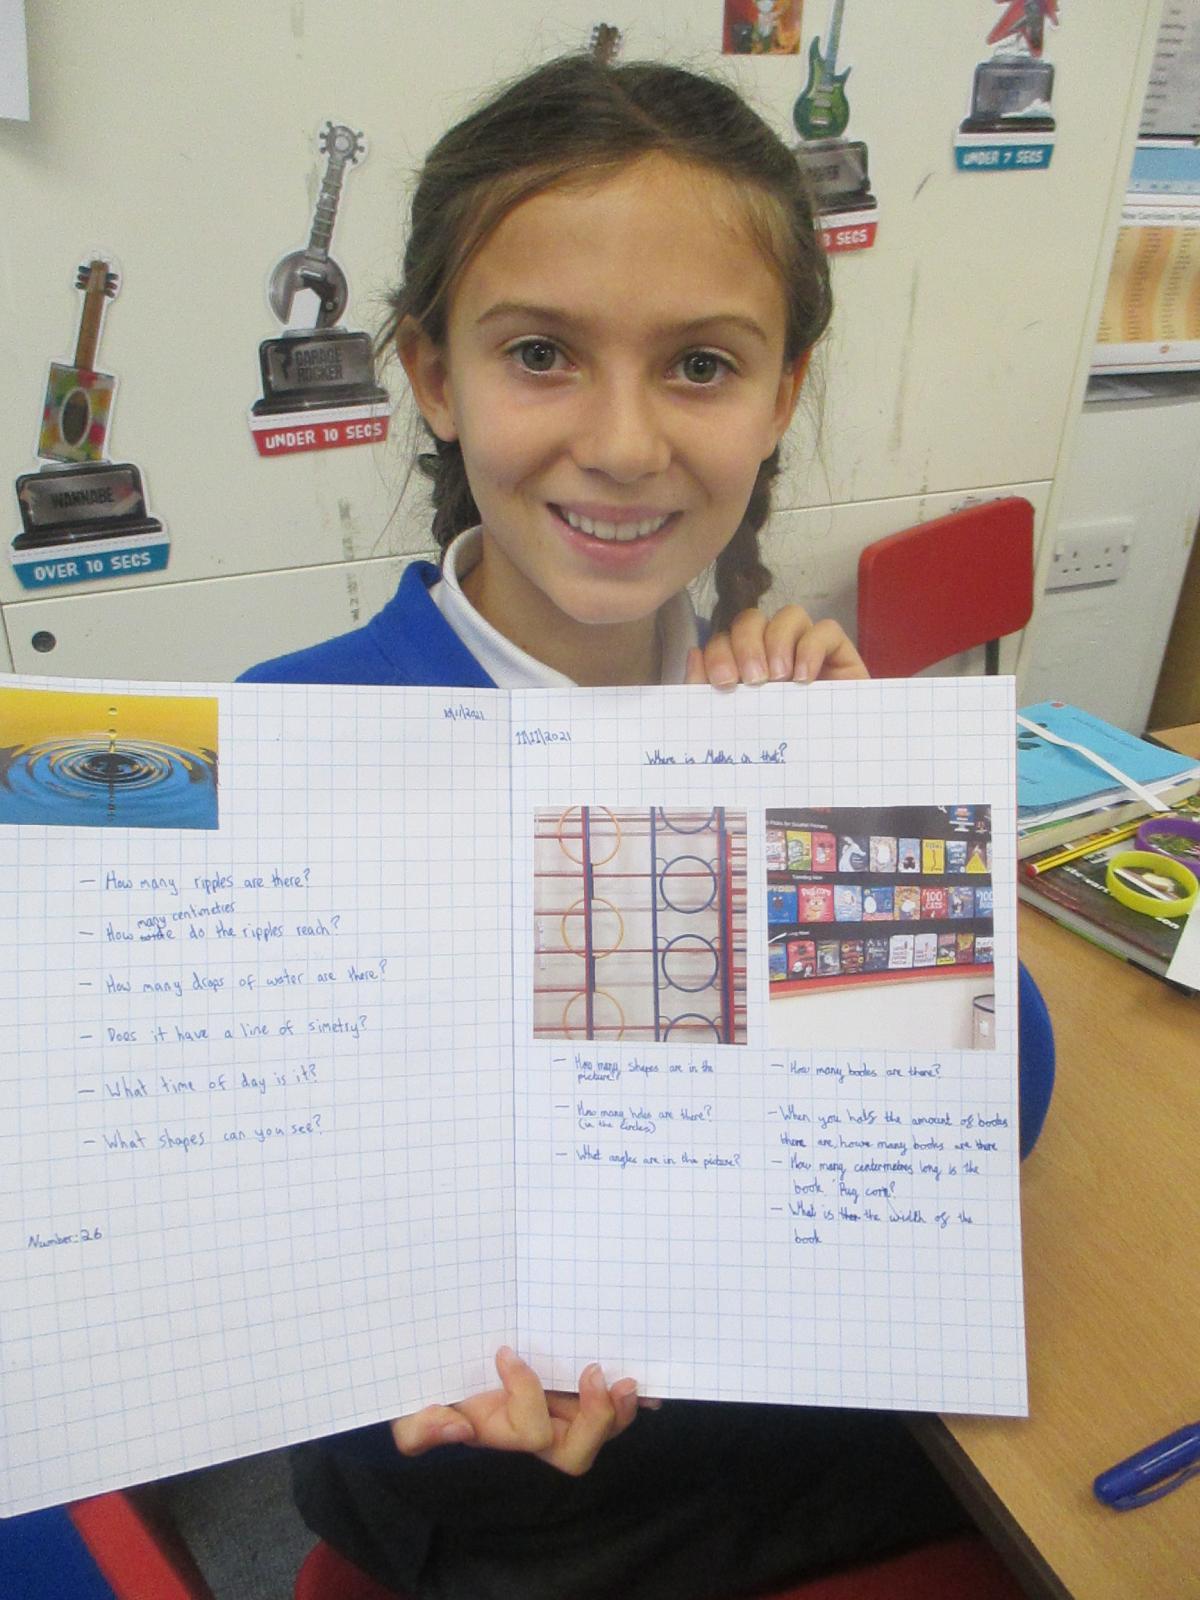 UNDER 7 SECS
3 SECS
New Curriculum
GARAGE
ROCKER
UNDER 10 SECS
WANNABE
OVER 10 SECS
10/11/2021
— How many ripples are there?
many centimetres
— How wide do the ripples reach?
— How many drops of water are there?
— Does it have a line of simetry?
— What time of day is it?
— What shapes can you see?
Number: 26
11/11/2021
Where is Maths in that?
— How many shapes are in the
picture?
— How many holes are there?
(in the circles)
— What angles are in this picture?
100
CATS
— How many books are there?
— When you half the amount of books
there are, howe many books are there
— How many centermetres long is the
book 'Pug corn?
— What is the width of the
book